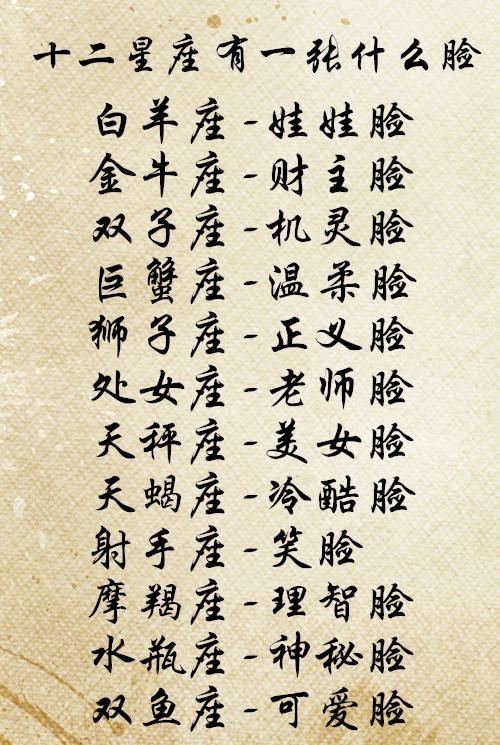 十二星座有一张什么脸
白羊座-娃娃脸
金牛座-财主脸
双子座-机灵脸
巨蟹座-温柔脸
狮子座-正义脸
处女座-老师脸
天秤座-美女脸
天蝎座-冷酷脸
射手座-笑脸
摩羯座-理智脸
水瓶座-神秘脸
双鱼座-可爱脸